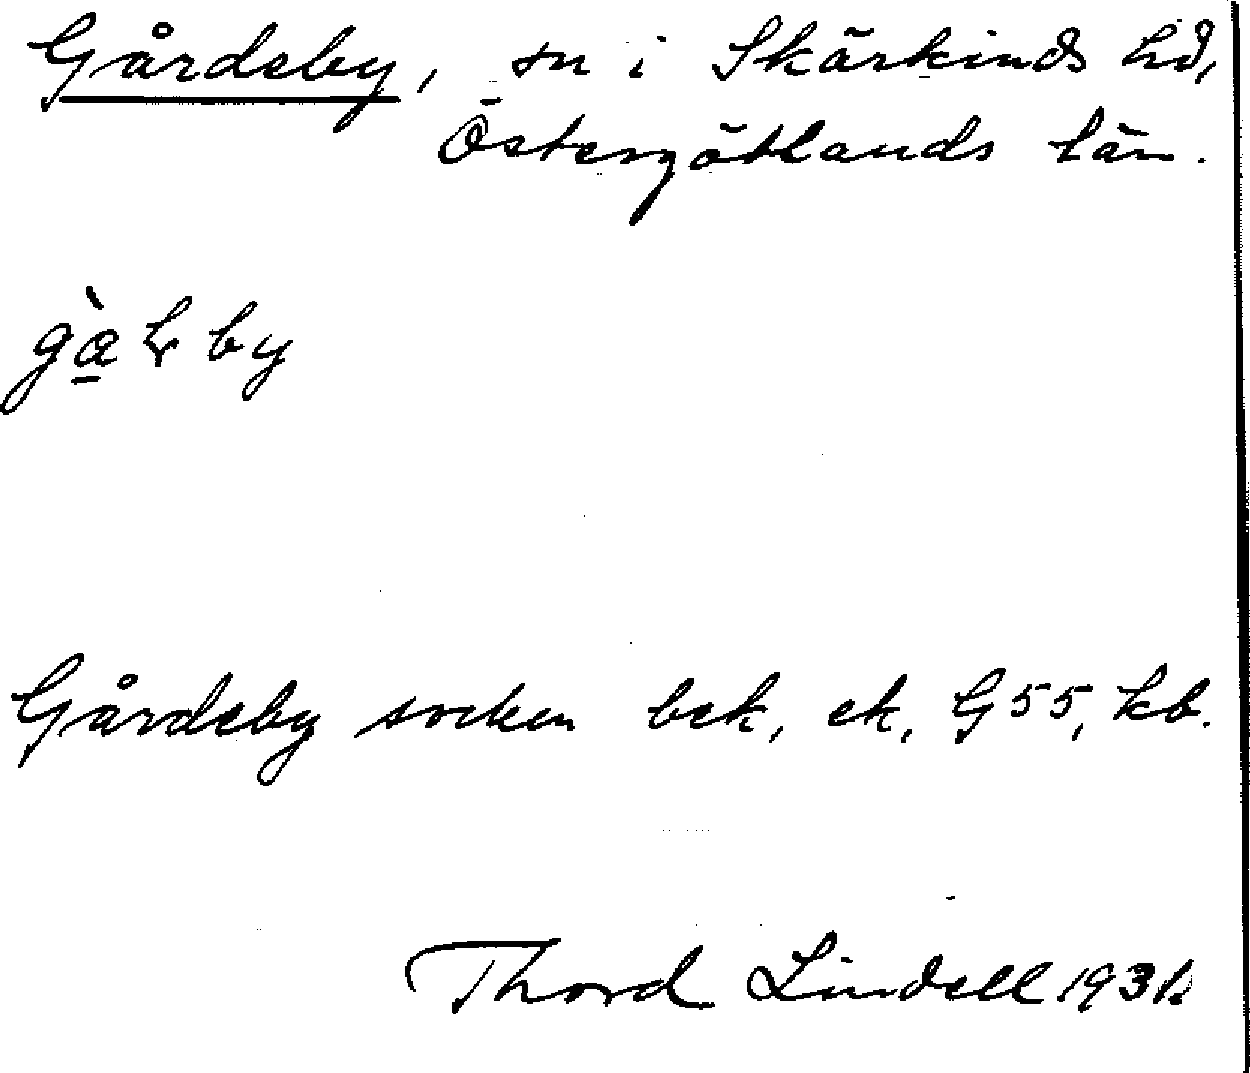 Gårdeby, sn i Skärkinds hd,
Östergötlands län.
Gårdeby socken bek, ek. G55, kb.
Thord Lindell 1931.